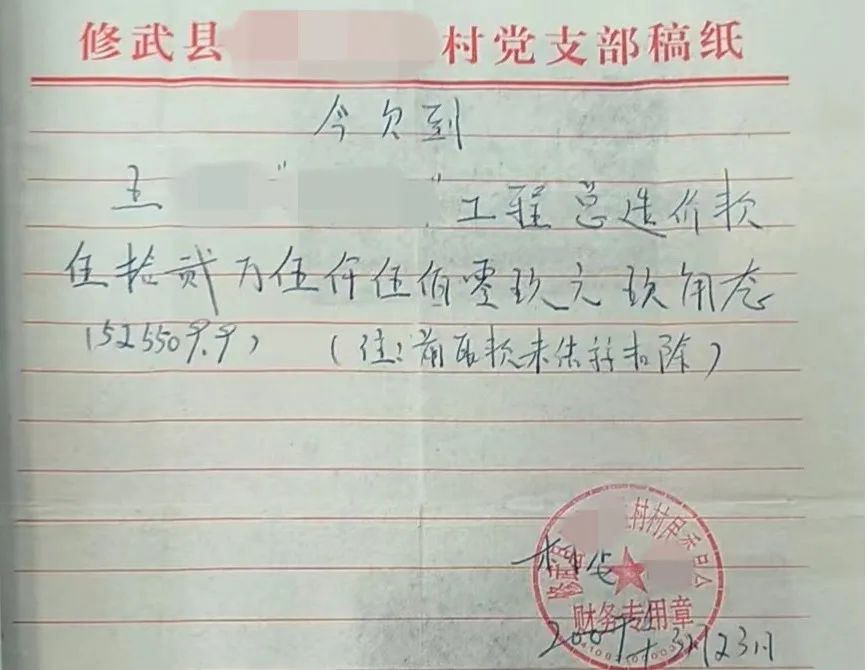 修武县 村党支部稿纸
今欠到
王 " " 工程总造价款
伍拾贰万伍仟伍佰零玖元玖角态
(525509.9) (注:前面款未结并扣除)
村村民委员会
财务专用章
3月23日